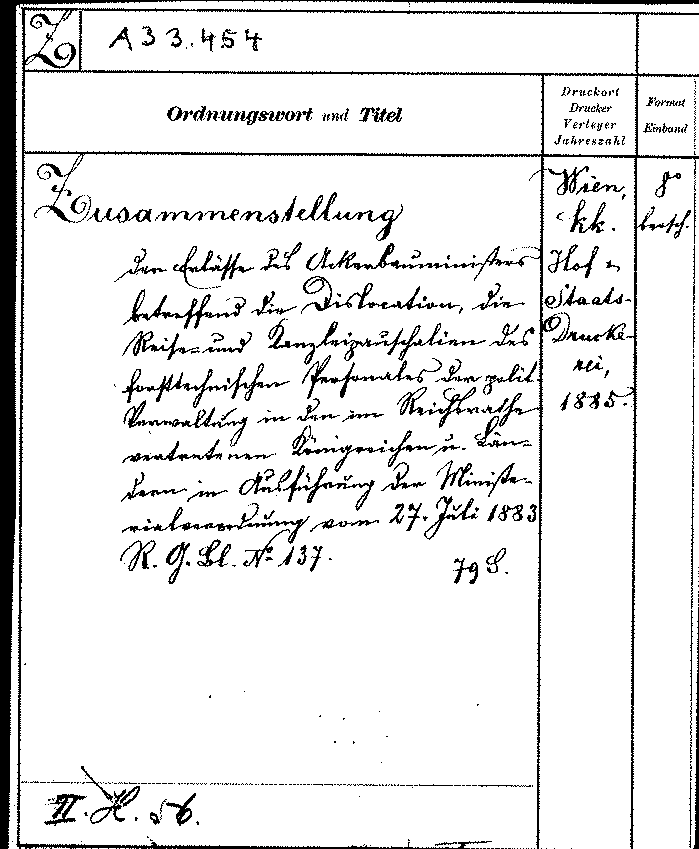 Z A33.454
Ordnungswort und Titel
Druckort
Drucker
Verleger
Jahreszahl
Format
Einband
Zusammenstellung
der Erlässe des Ackerbauministers
betreffend die Dislocation, die
Reise- und Kanzleipauschalien des
forsttechnischen Personales der polit.
Verwaltung in den im Reichsrathe
vertretenen Königreichen u. Län-
dern in Ausführung der Ministe-
rialverordnung vom 27. Juli 1883
R. G. Bl. No 137.
79 S.
Wien,
kk.
Hof u
Staats-
Drucke-
rei,
1885.
8°
brosch.
II. H. 56.